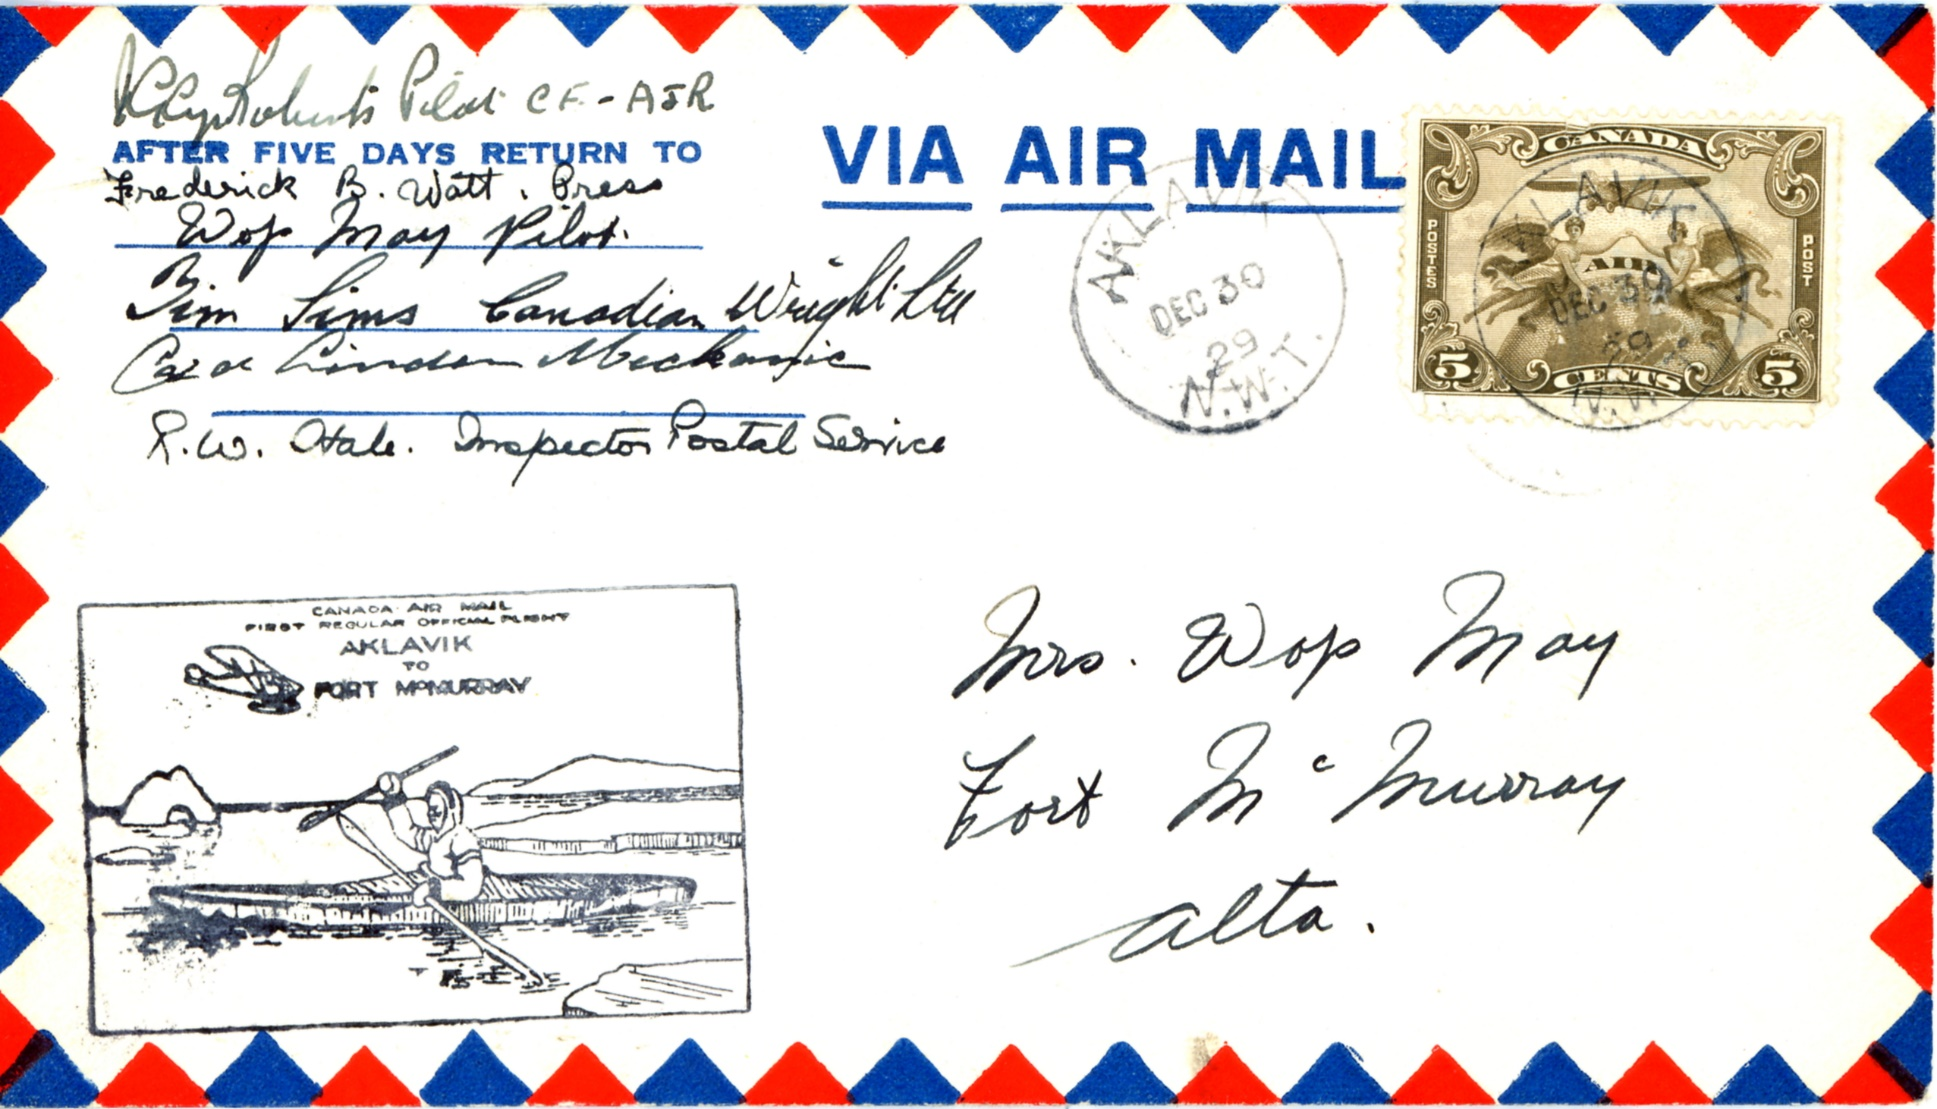 Roberts Pilot CF-AJR
AFTER FIVE DAYS RETURN TO
Frederick B. Watt. Press
Wop May Pilot.
Tim Sims Canadian Wright Ltd
Linden Mechanic
R.W. Hale. Inspector Postal Service
VIA AIR MAIL
AKLAVIK
DEC 30
29
N.W.T.
CANADA
POSTES
POST
AIR
5 CENTS 5
AKLAVIK
DEC 30
29
N.W.
CANADA AIR MAIL
FIRST REGULAR OFFICIAL FLIGHT
AKLAVIK
TO
FORT McMURRAY
Mrs. Wop May
Fort McMurray
Alta.